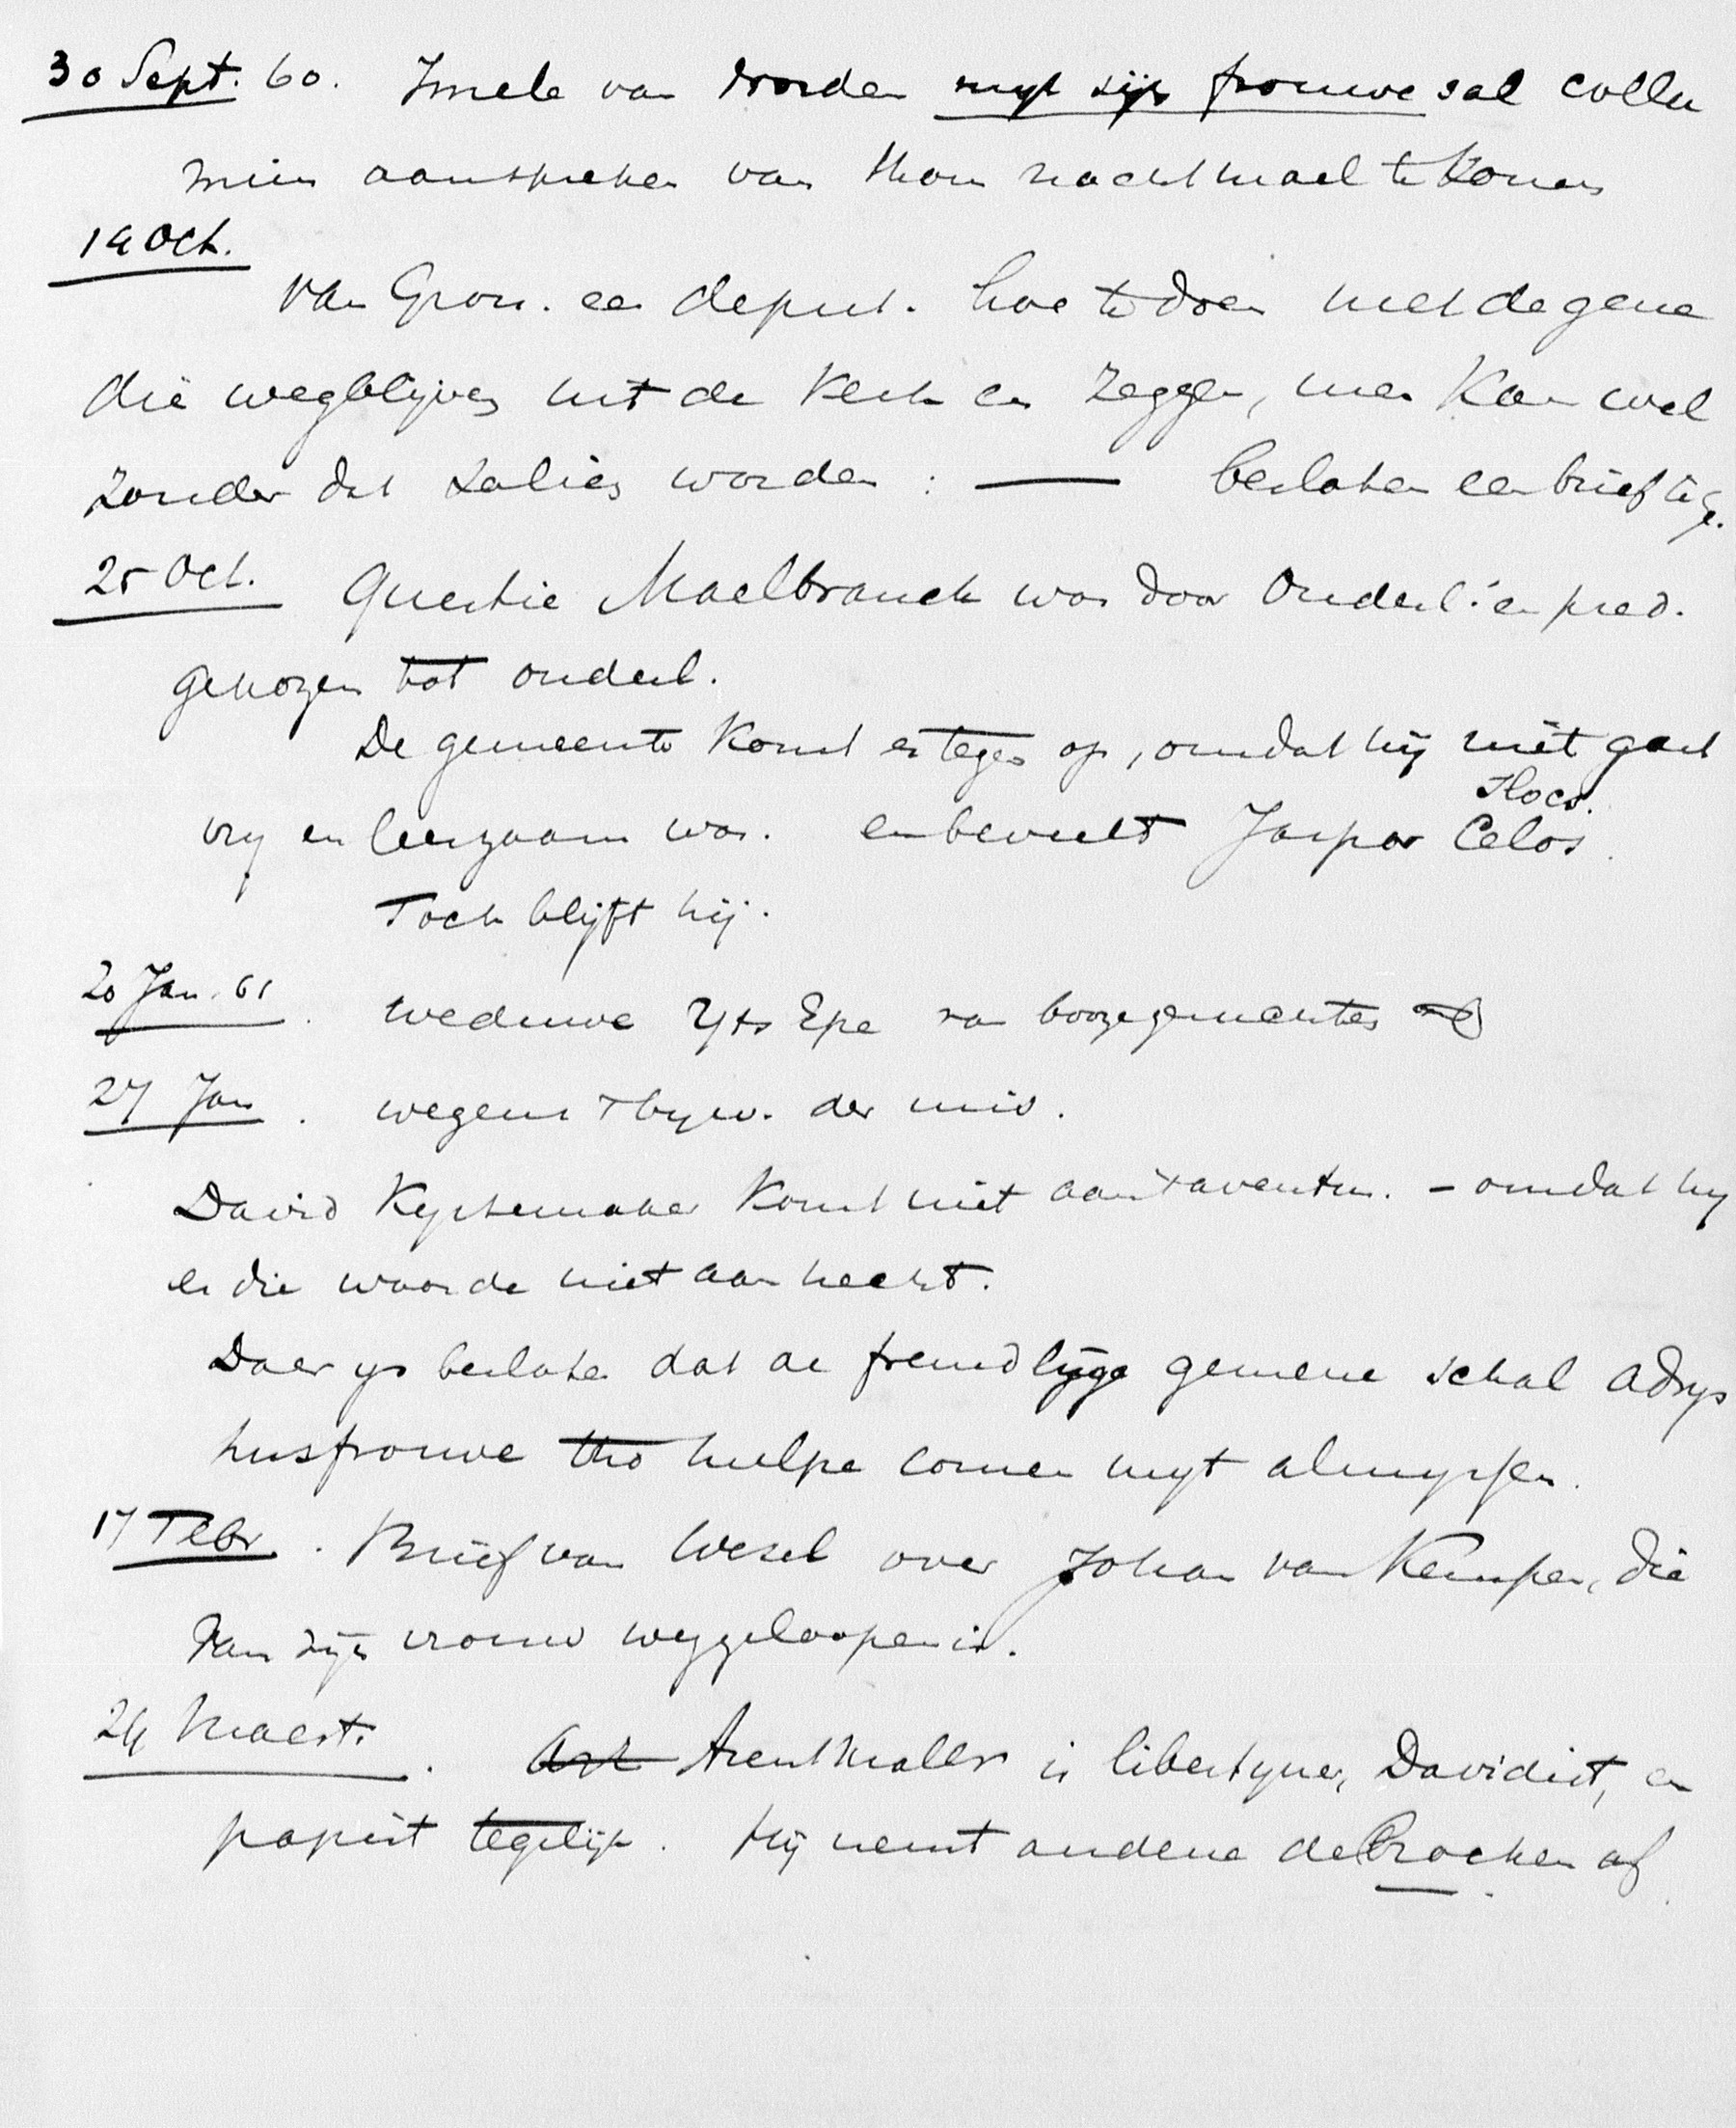 30 Sept. 60. Imele van Vorden myt sijn frouwe sal Collu
mius aanspreken van thom nachtmael te komen
14 Oct.
van Gron. een deput. hoe te doen met degene
die wegblijven uit de kerk en zeggen, men kan wel
zonder dat zalig worden : — besloten een brief te
25 Oct. Questie Maelbranck was door Ouderl. en pred.
gekozen tot ouderl.
De gemeente komt er tegen op, omdat hij niet gast
vrij en leerzaam was. en beveelt Jaspar Celos
Toch blijft hij.
20 Jan. 61. weduwe Yts Epe van booze gemeentes
27 Jan. wegens bijw. der mis.
David Kystemaker komt niet aan 't aventm. - omdat hij
er die waarde niet aan hecht.
Daer ys besloten dat de fremdlijge gemene schal Adrys
husfrouwe tho hulpe comen myt almyssen.
17 Febr. Brief van Wesel over Johan van Kempen, die
van zijn vrouw weggeloopen is.
24 Maert. Arent is libertyner, Davidist, en
papist tegelijk. Hij neemt anderen de af